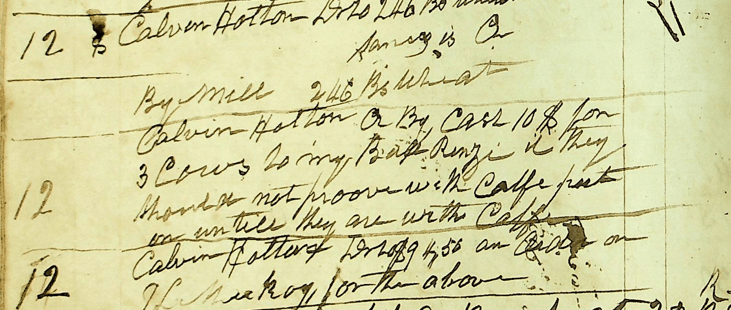 12 $ Calvin Hotton Dr to 246 Bs Wheat
same is Cr
By Mill 246 Bs Wheat
Calvin Hotton Cr By Cash 10 $ for
3 Cows to my if they
12 should not proove with Calfe
on untill they are with Calfe
Calvin Hotton Dr to 94,50 an order on
12 for the above